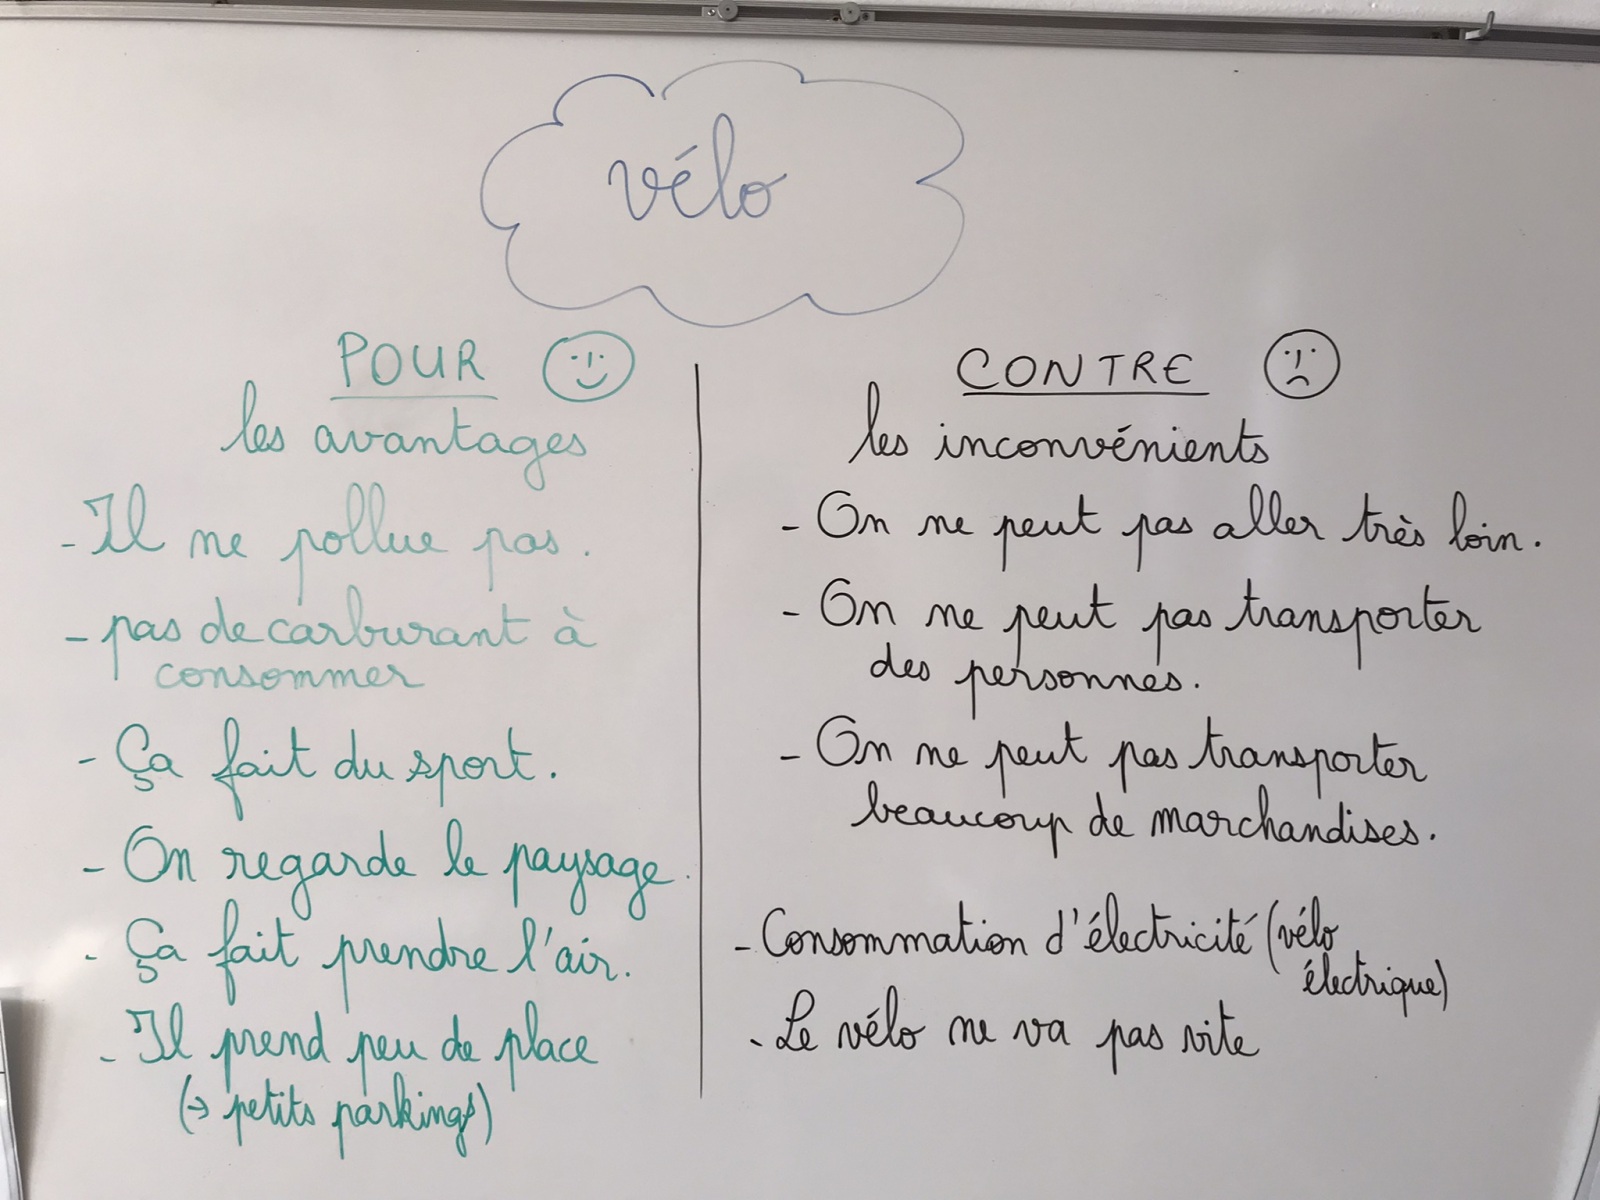 vélo
POUR
les avantages
- Il ne pollue pas.
- pas de carburant à
consommer
- Ça fait du sport.
- On regarde le paysage.
- Ça fait prendre l'air.
- Il prend peu de place
(→ petits parkings)
CONTRE
les inconvénients
- On ne peut pas aller très loin.
- On ne peut pas transporter
des personnes.
- On ne peut pas transporter
beaucoup de marchandises.
- Consommation d'électricité (vélo
électrique)
- Le vélo ne va pas vite